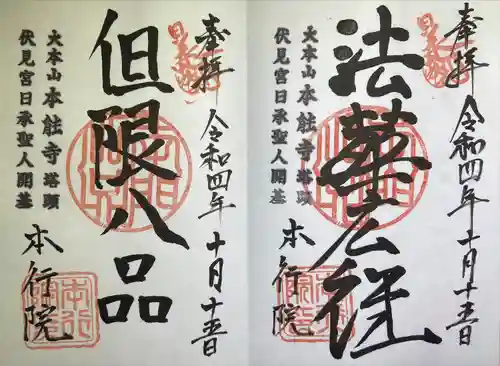 奉拝 令和四年十月十五日
法
大本山本能寺塔頭
伏見宮日承聖人開基
本行院
奉拝 令和四年十月十五日
但限八品
大本山本能寺塔頭
伏見宮日承聖人開基
本行院